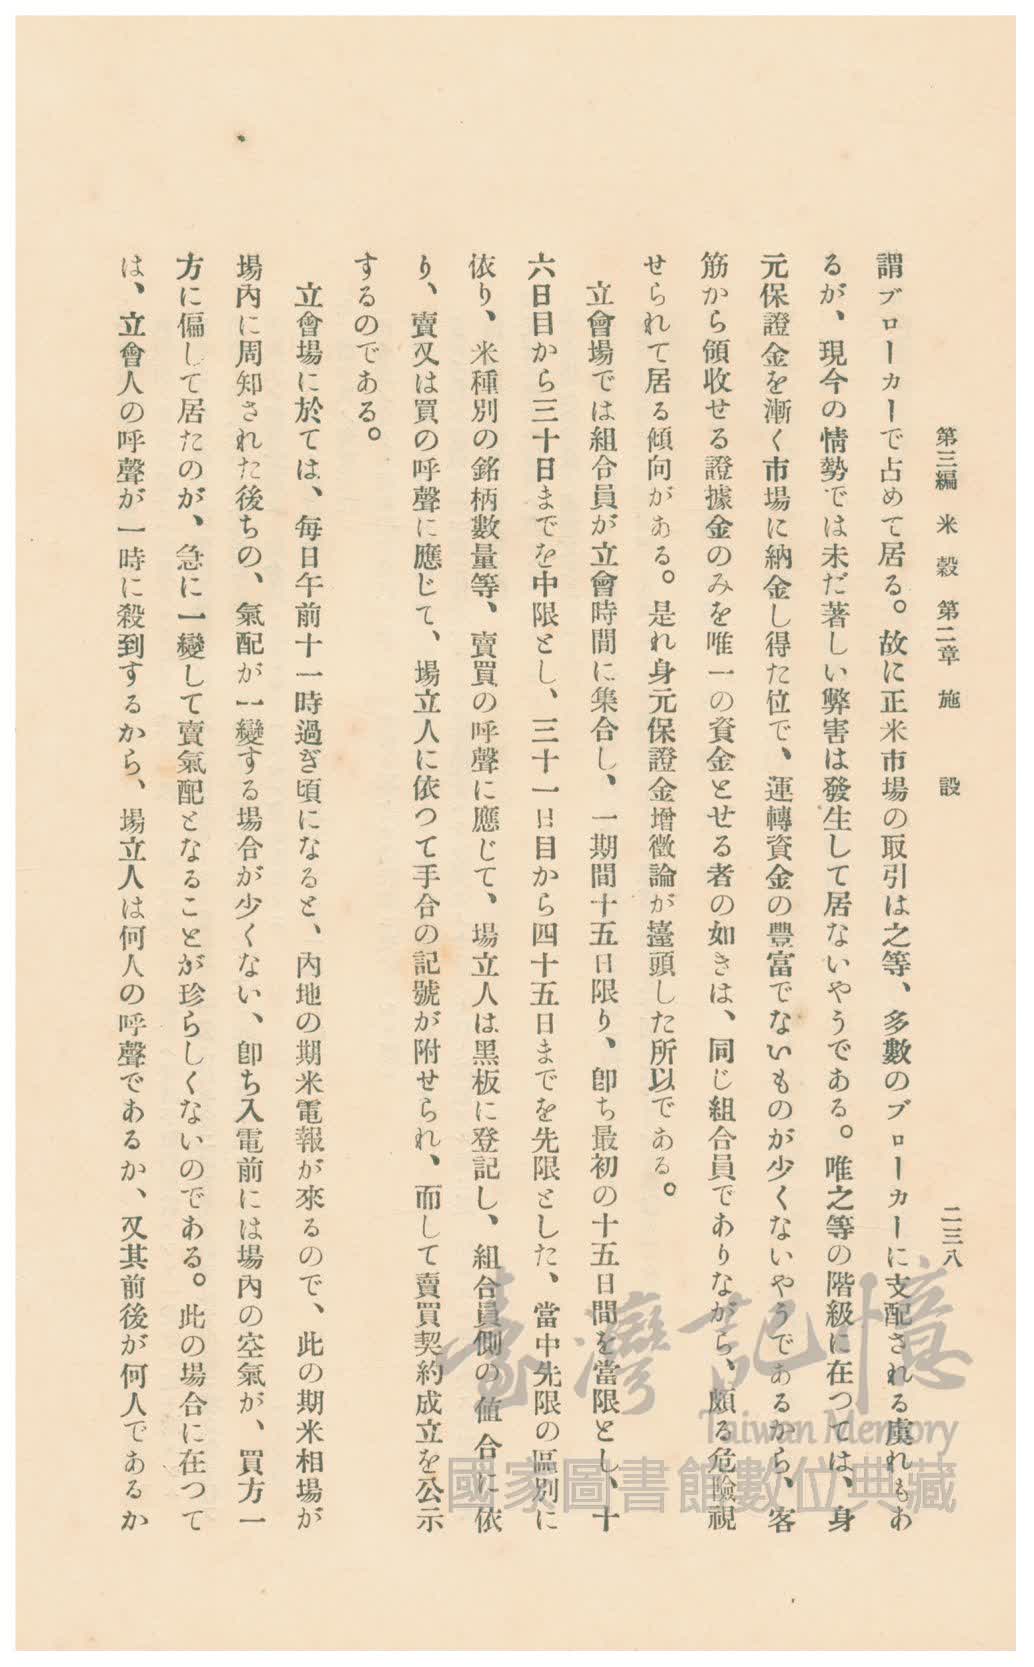 第三編　米穀　第二章　施設　二三八
謂ブローカーで占めて居る。故に正米市場の取引は之等、多數のブローカーに支配される虞れもあ
るが、現今の情勢では未だ著しい弊害は發生して居ないやうである。唯之等の階級に在つては、身
元保證金を漸く市場に納金し得た位で、運轉資金の豐富でないものが少くないやうであるから、客
筋から領收せる證據金のみを唯一の資金とせる者の如きは、同じ組合員でありながら、頗る危險視
せられて居る傾向がある。是れ身元保證金增徵論が擡頭した所以である。
立會場では組合員が立會時間に集合し、一期間十五日限り、卽ち最初の十五日間を當限とし、十
六日目から三十日までを中限とし、三十一日目から四十五日までを先限とした、當中先限の區別に
依り、米種別の銘柄數量等、賣買の呼聲に應じて、場立人は黑板に登記し、組合員側の値合に依
り、賣又は買の呼聲に應じて、場立人に依つて手合の記號が附せられ、而して賣買契約成立を公示
するのである。
立會場に於ては、每日午前十一時過ぎ頃になると、內地の期米電報が來るので、此の期米相場が
場內に周知された後ちの、氣配が一變する場合が少くない、卽ち入電前には場內の空氣が、買方一
方に偏して居たのが、急に一變して賣氣配となることが珍らしくないのである。此の場合に在つて
は、立會人の呼聲が一時に殺到するから、場立人は何人の呼聲であるか、又其前後が何人であるか
臺灣記憶
Taiwan Memory
國家圖書館數位典藏